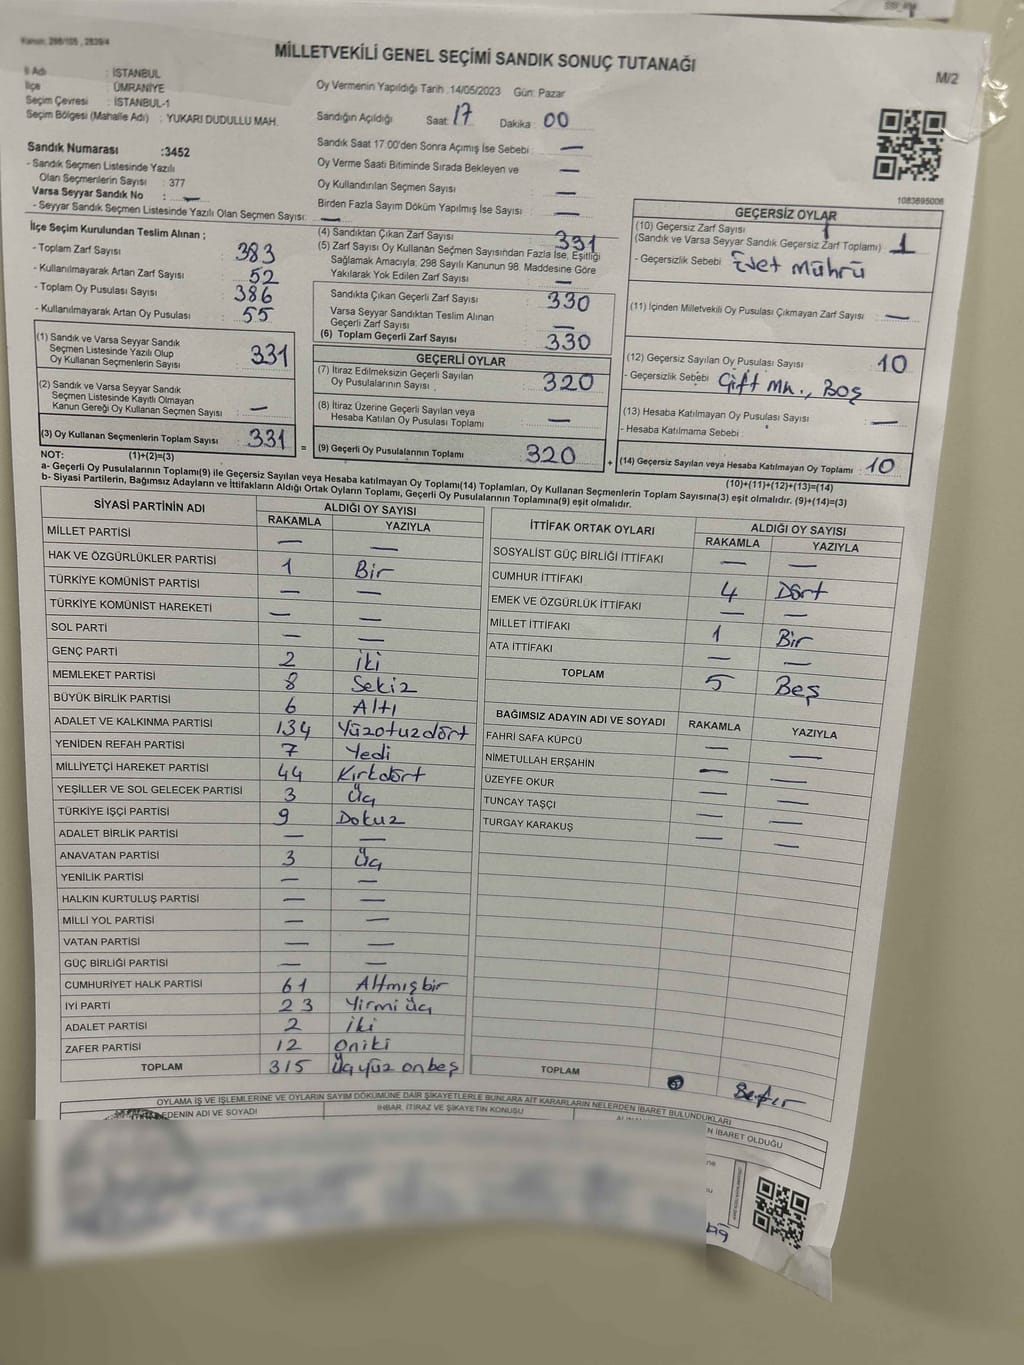 Kanun: 298/105 , 2839/4
MİLLETVEKİLİ GENEL SEÇİMİ SANDIK SONUÇ TUTANAĞI
M/2
İl Adı : İSTANBUL
İlçe : ÜMRANİYE
Seçim Çevresi : İSTANBUL-1
Seçim Bölgesi (Mahalle Adı) : YUKARI DUDULLU MAH.
Oy Vermenin Yapıldığı Tarih : 14/05/2023 Gün: Pazar
Sandığın Açıldığı Saat: 17 Dakika : 00
Sandık Saat 17.00'den Sonra Açımış İse Sebebi : —
Oy Verme Saati Bitiminde Sırada Bekleyen ve —
Oy Kullandırılan Seçmen Sayısı : —
Birden Fazla Sayım Döküm Yapılmış İse Sayısı : —
Sandık Numarası :3452
- Sandık Seçmen Listesinde Yazılı
Olan Seçmenlerin Sayısı : 377
Varsa Seyyar Sandık No : —
- Seyyar Sandık Seçmen Listesinde Yazılı Olan Seçmen Sayısı: —
1083695006
İlçe Seçim Kurulundan Teslim Alınan ;
- Toplam Zarf Sayısı : 383
- Kullanılmayarak Artan Zarf Sayısı : 52
- Toplam Oy Pusulası Sayısı : 386
- Kullanılmayarak Artan Oy Pusulası : 55
(1) Sandık ve Varsa Seyyar Sandık
Seçmen Listesinde Yazılı Olup
Oy Kullanan Seçmenlerin Sayısı : 331
(2) Sandık ve Varsa Seyyar Sandık
Seçmen Listesinde Kayıtlı Olmayan
Kanun Gereği Oy Kullanan Seçmen Sayısı : —
(3) Oy Kullanan Seçmenlerin Toplam Sayısı : 331
(1)+(2)=(3)
(4) Sandıktan Çıkan Zarf Sayısı : 331
(5) Zarf Sayısı Oy Kullanan Seçmen Sayısından Fazla İse, Eşitliği
Sağlamak Amacıyla; 298 Sayılı Kanunun 98. Maddesine Göre
Yakılarak Yok Edilen Zarf Sayısı : —
Sandıkta Çıkan Geçerli Zarf Sayısı : 330
Varsa Seyyar Sandıktan Teslim Alınan
Geçerli Zarf Sayısı : —
(6) Toplam Geçerli Zarf Sayısı : 330
GEÇERLİ OYLAR
(7) İtiraz Edilmeksizin Geçerli Sayılan
Oy Pusulalarının Sayısı : 320
(8) İtiraz Üzerine Geçerli Sayılan veya
Hesaba Katılan Oy Pusulası Toplamı : —
= (9) Geçerli Oy Pusulalarının Toplamı : 320
GEÇERSİZ OYLAR
(10) Geçersiz Zarf Sayısı
(Sandık ve Varsa Seyyar Sandık Geçersiz Zarf Toplamı) : 1
- Geçersizlik Sebebi : Evet Mührü
(11) İçinden Milletvekili Oy Pusulası Çıkmayan Zarf Sayısı : —
(12) Geçersiz Sayılan Oy Pusulası Sayısı : 10
- Geçersizlik Sebebi : Çift Mh., Boş
(13) Hesaba Katılmayan Oy Pusulası Sayısı : —
- Hesaba Katılmama Sebebi :
+ (14) Geçersiz Sayılan veya Hesaba Katılmayan Oy Toplamı : 10
(10)+(11)+(12)+(13)=(14)
NOT:
a- Geçerli Oy Pusulalarının Toplamı(9) ile Geçersiz Sayılan veya Hesaba Katılmayan Oy Toplamı(14) Toplamları, Oy Kullanan Seçmenlerin Toplam Sayısına(3) eşit olmalıdır. (9)+(14)=(3)
b- Siyasi Partilerin, Bağımsız Adayların ve İttifakların Aldığı Ortak Oyların Toplamı, Geçerli Oy Pusulalarının Toplamına(9) eşit olmalıdır.
SİYASİ PARTİNİN ADI ALDIĞI OY SAYISI
RAKAMLA YAZIYLA
MİLLET PARTİSİ — —
HAK VE ÖZGÜRLÜKLER PARTİSİ 1 Bir
TÜRKİYE KOMÜNİST PARTİSİ — —
TÜRKİYE KOMÜNİST HAREKETİ — —
SOL PARTİ — —
GENÇ PARTİ 2 iki
MEMLEKET PARTİSİ 8 Sekiz
BÜYÜK BİRLİK PARTİSİ 6 Altı
ADALET VE KALKINMA PARTİSİ 134 Yüzotuzdört
YENİDEN REFAH PARTİSİ 7 Yedi
MİLLİYETÇİ HAREKET PARTİSİ 44 Kırkdört
YEŞİLLER VE SOL GELECEK PARTİSİ 3 Üç
TÜRKİYE İŞÇİ PARTİSİ 9 Dokuz
ADALET BİRLİK PARTİSİ — —
ANAVATAN PARTİSİ 3 Üç
YENİLİK PARTİSİ — —
HALKIN KURTULUŞ PARTİSİ — —
MİLLİ YOL PARTİSİ — —
VATAN PARTİSİ — —
GÜÇ BİRLİĞİ PARTİSİ — —
CUMHURİYET HALK PARTİSİ 61 Altmışbir
İYİ PARTİ 23 Yirmi üç
ADALET PARTİSİ 2 iki
ZAFER PARTİSİ 12 Oniki
TOPLAM 315 Üçyüz onbeş
İTTİFAK ORTAK OYLARI ALDIĞI OY SAYISI
RAKAMLA YAZIYLA
SOSYALİST GÜÇ BİRLİĞİ İTTİFAKI — —
CUMHUR İTTİFAKI 4 Dört
EMEK VE ÖZGÜRLÜK İTTİFAKI — —
MİLLET İTTİFAKI 1 Bir
ATA İTTİFAKI — —
TOPLAM 5 Beş
BAĞIMSIZ ADAYIN ADI VE SOYADI RAKAMLA YAZIYLA
FAHRİ SAFA KÜPCÜ — —
NİMETULLAH ERŞAHİN — —
ÜZEYFE OKUR — —
TUNCAY TAŞÇI — —
TURGAY KARAKUŞ — —
TOPLAM Sıfır
OYLAMA İŞ VE İŞLEMLERİNE VE OYLARIN SAYIM DÖKÜMÜNE DAİR ŞİKAYETLERLE BUNLARA AİT KARARLARIN NELERDEN İBARET BULUNDUKLARI
EDENİN ADI VE SOYADI İHBAR, İTİRAZ VE ŞİKAYETİN KONUSU
N İBARET OLDUĞU